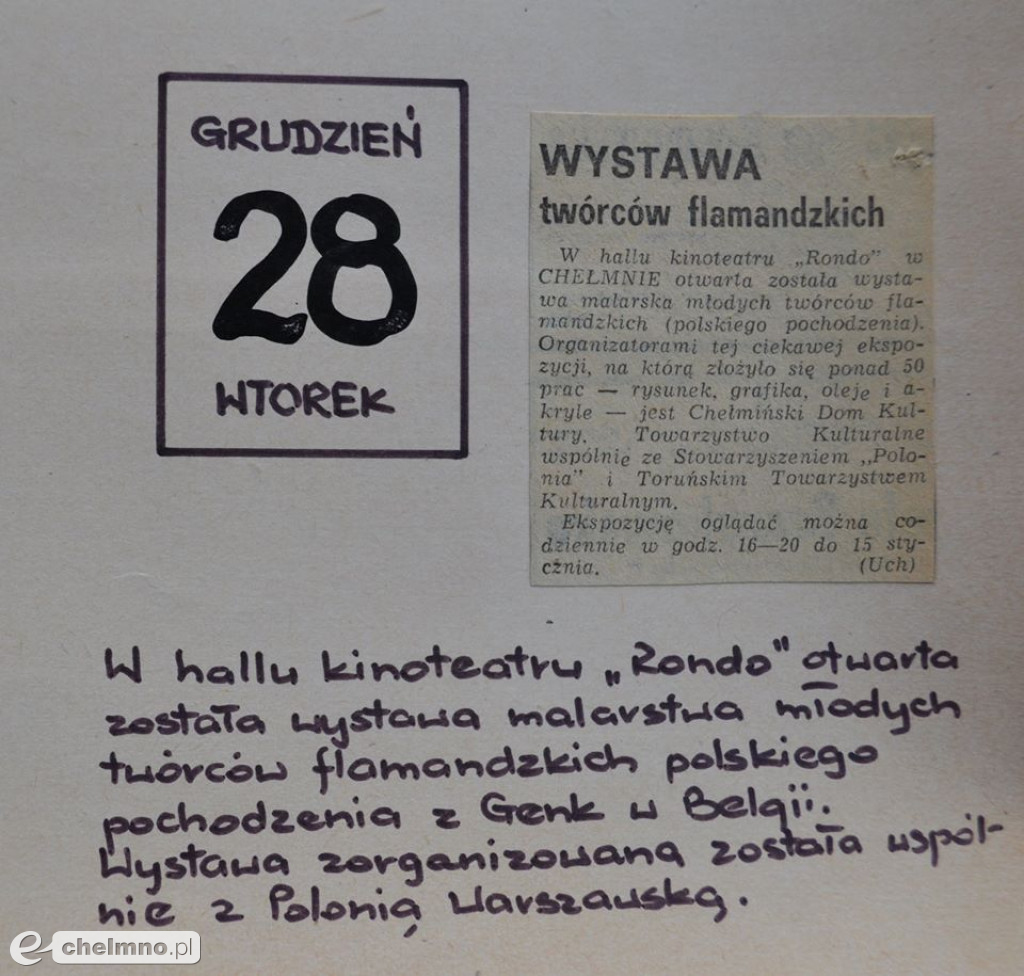 GRUDZIEŃ
28
WTOREK
WYSTAWA
twórców flamandzkich
W hallu kinoteatru „Rondo” w
CHEŁMNIE otwarta została wysta-
wa malarska młodych twórców fla-
mandzkich (polskiego pochodzenia).
Organizatorami tej ciekawej ekspo-
zycji, na którą złożyło się ponad 50
prac — rysunek, grafika, oleje i a-
kryle — jest Chełmiński Dom Kul-
tury, Towarzystwo Kulturalne
wspólnie ze Stowarzyszeniem „Polo-
nia” i Toruńskim Towarzystwem
Kulturalnym.
Ekspozycję oglądać można co-
dziennie w godz. 16—20 do 15 sty-
cznia. (Uch)
W hallu kinoteatru „Rondo” otwarta
została wystawa malarstwa młodych
twórców flamandzkich polskiego
pochodzenia z Genk w Belgii.
Wystawa zorganizowana została wspól-
nie z Polonią Warszawską.
e chelmno.pl